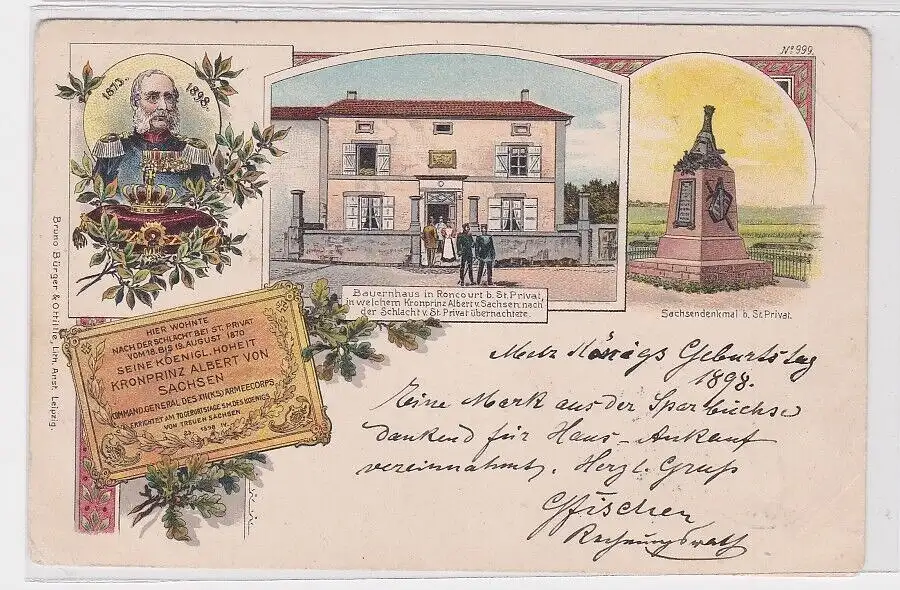 No 999.
1873.
1898.
Bauernhaus in Roncourt b. St. Privat,
in welchem Kronprinz Albert v. Sachsen nach
der Schlacht v. St. Privat übernachtete.
Sachsendenkmal b. St. Privat.
Bruno Bürger & Ottillie, Lith. Anst. Leipzig.
HIER WOHNTE
NACH DER SCHLACHT BEI ST. PRIVAT
VOM 18. BIS 19. AUGUST 1870
SEINE KOENIGL. HOHEIT
KRONPRINZ ALBERT VON
SACHSEN
KOMMAND. GENERAL DES XII (K.S.) ARMEECORPS
ERRICHTET AM 70 GEBURTSTAGE S.M. DES KOENIGS
VON TREUEN SACHSEN
23. 1898 IV.
Metz Königs Geburtstag
1898.
Eine Mark aus der Sparbüchse
dankend für Haus-Ankauf
vereinnahmt. Herzl. Gruß
Fischer
Rechnungsrath